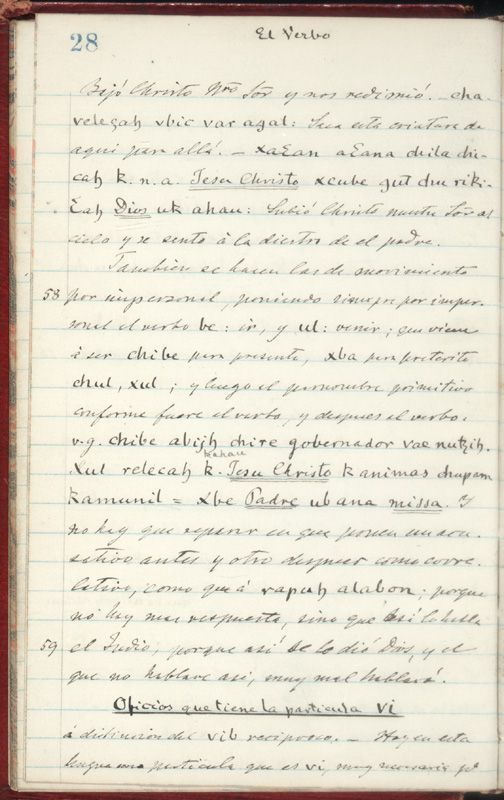 28
El Verbo
Bajó Christo Nro Sor y nos redimió. — cha-
veleçah vbic var aqal: Saca esta criatura de
aqui para allá. — xaƐan aƐana chila chi-
cah k. n. a. Jesu Christo xcube qut chu riki-
Ɛah Dios uk ahau: Subió Christo nuestro Sor al
cielo y se sentó à la diestra de el padre.
Tambien se hacen los de movimiento
58 por impersonal, poniendo siempre por imper-
sonal el verbo be: ir, y ul: venir; que viene
à ser chibe para presente, xba para preterito
chul, xul; y luego el pronombre primitivo
conforme fuere el verbo, y despues el verbo.
v.g. chibe abijh chire gobernador vae nutzih.
kahau
Xul relecah k. Jesu Christo kanimas chupam
kamunil = xbe Padre ubana missa. Y
no hay que reparar en que ponen un acu-
sativo antes y otro despues como corre-
lativo, como que á rapuh alabon; porque
no hay mas respuesta, sino que así lo habla
59 el Indio, porque así se lo dió Dios, y el
que no hablare asi, muy mal hablará.
Oficios que tiene la particula vi
á distincion del vib reciproco. — Hay en esta
lengua una particula que es vi, muy necesaria pa